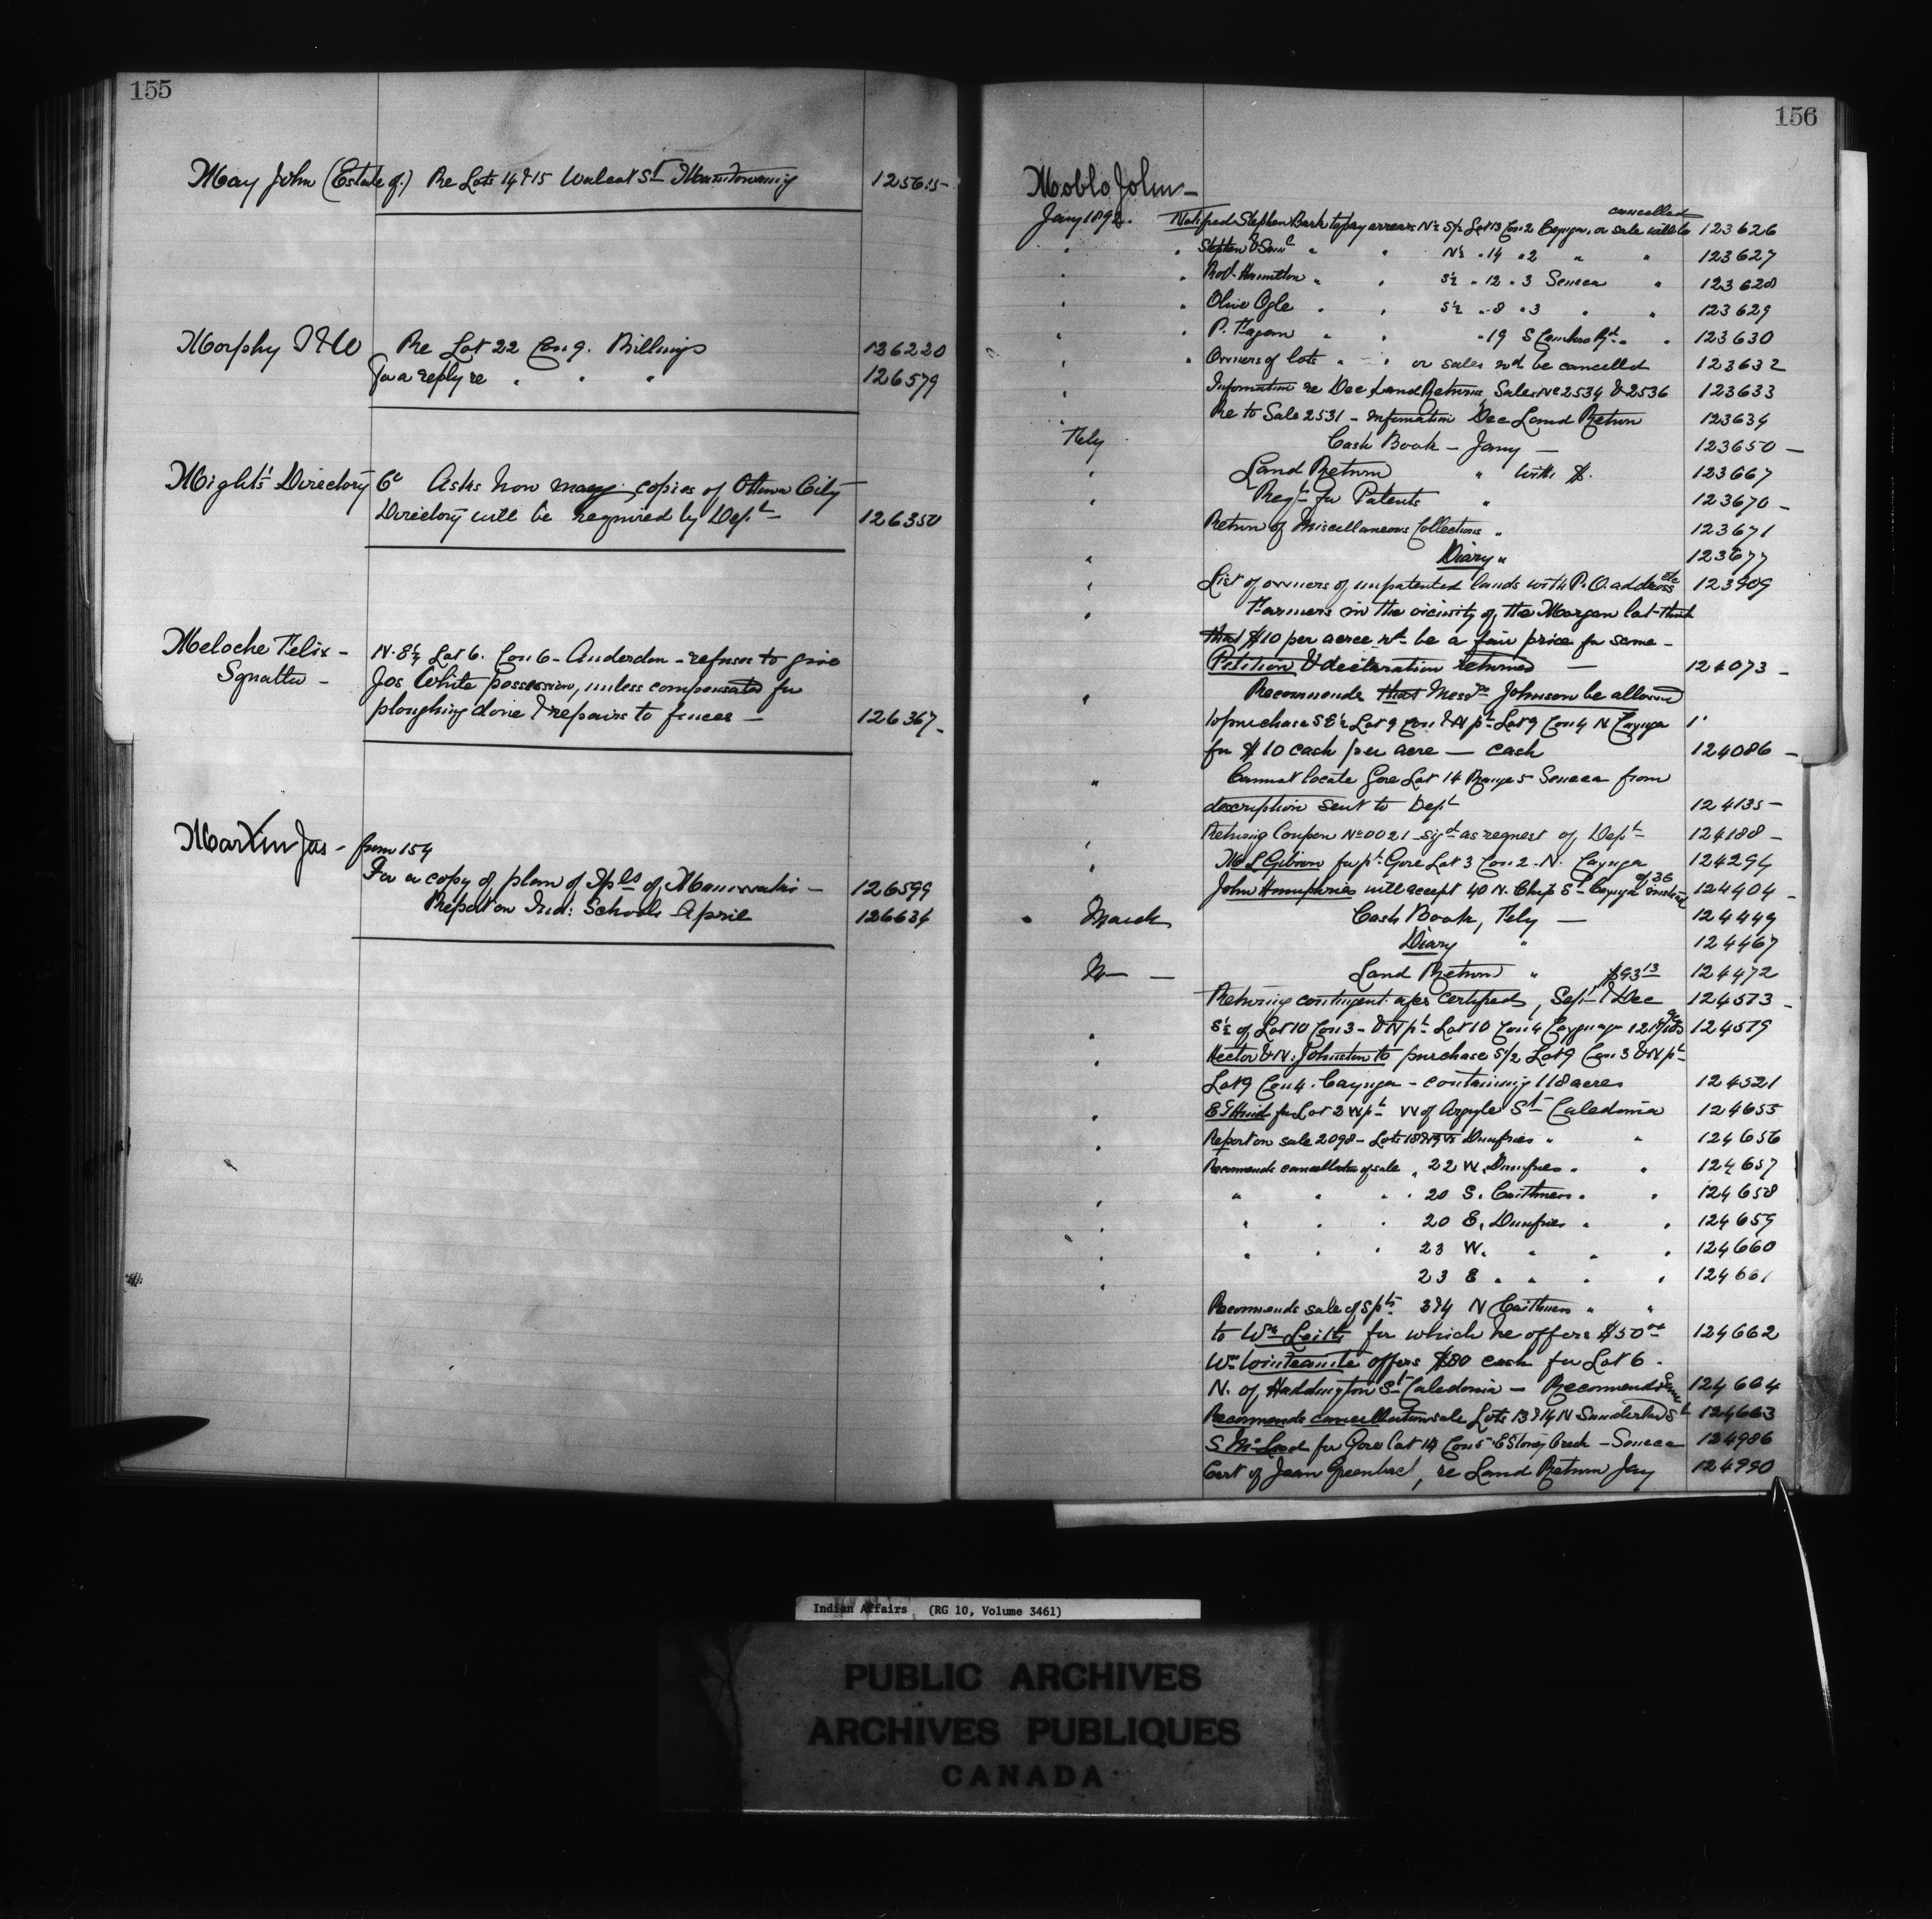 155
May John (Estate of.) Re Lots 14 & 15 Walcat St Manitowaning 125615
Morphy I & Co Re Lot 22 Con 9. Billings 126220
For a reply re " " " 126579
Might's Directory Co Asks how many copies of Ottawa City
Directory will be required by Dept 126350
Meloche Felix - N. E¼ Lot 6. Con 6 - Anderdon - refuses to give
Squatter - Jos White possession, unless compensated for
ploughing done & repairs to fences - 126367
Martin Jas - from 154
For a copy of plan of Tpls of Maniwaki - 126599
Report on Ind: Schools April 126634
156
John -
cancelled
Jany 1892. Notified Stephen Bark to pay arrears N½ S½ Lot 13 Con 2 Cayuga, or sale will be 123626
" " Stephen & " " N½ " 14 " 2 " " 123627
" " Robt Hamilton " " S½ " 12 " 3 Seneca " 123628
" " Olive Ogle " " S½ " 8 " 3 " " 123629
" " P. Fagan " " " 19 S Rd " " 123630
" " Owners of lots " " or sales wd be cancelled 123632
" Information re Dec Land Returns, Sales No 2534 & 2536 123633
Re to Sale 2531 - information Dec Land Return 123634
Feby Cash Book - Jany - 123650 -
" Land Return " with $. 123667
" Reqt for Patents " 123670 -
Return of Miscellaneous Collections " 123671
" Diary " 123677
" List of owners of unpatented lands with P. O. address etc 123909
" Farmers in the vicinity of the Morgan lot think
that $10 per acree wd be a fair price for same -
Petition & declaration returned - 124073 -
" Recommends that Messrs Johnson be allowed
to purchase S E½ Lot 9 Con & N pt Lot 9 Con 4 N Cayuga 1'
for $10 cash per acre - cash 124086 -
" Cannot locate Gore Lot 14 Range 5 Seneca from
description sent to Dept 124135 -
" Returning Coupon No 0021 - sigd as request of Dept 124188 -
" L Gibson for pt Gore Lot 3 Con 2 - N. Cayuga 124294
John Humphries will accept 40 N. Chip St Cayuga of 36 instead 124404 -
" March Cash Book, Feby - 124449
Diary " 124467
Land Return " $93 13 124472
Returning contingent a/cs certified, Sept & Dec 124573 -
" S½ of Lot 10 Con 3 - & N pt Lot 10 Con 4 Cayuga 124579
" Hector & N. Johnston to purchase S/2 Lot 9 Con 3 & N pt
Lot 9 Con 4. Cayuga - containing 118 acres 124521
" for Lot 2 W pt W of Argyle St Caledonia 124655
" Report on sale 2098 - Lots 18 & 19 W Dumfries " " 124656
Recommends cancellation of sale " 22 W. Dumfries " " 124657
" " " " 20 S. Caithness " " 124658
" " " " 20 E. Dumfries " " 124659
" " " " 23 W. " " " 124660
" 23 E " " " " 124661
Recommends sale of S pts 3 & 4 N Caithness " "
to Wm Leith for which he offers $50 00 124662
Wm offers $80 cash for Lot 6.
N. of Haddington St Caledonia - Recommends same 124664
Recommends cancellation sale Lots 13 & 14 N Sunderland St 124663
S McLeod for Gore Lot 14 Con 5 E Stoney Creek - Seneca 124986
Cert of Jean Greenback, re Land Return Jay 124990
Indian Affairs (RG 10, Volume 3461)
PUBLIC ARCHIVES
ARCHIVES PUBLIQUES
CANADA